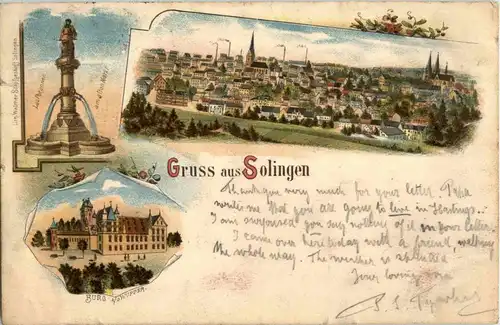 Gruss aus Solingen
Thank you very much for your letter Papa
write me that you are going to live in Hastings.
I am surprised you say nothing of it in your letter.
I came over here today with a friend walking
the whole way. The weather is splendid
Your loving son
BURG